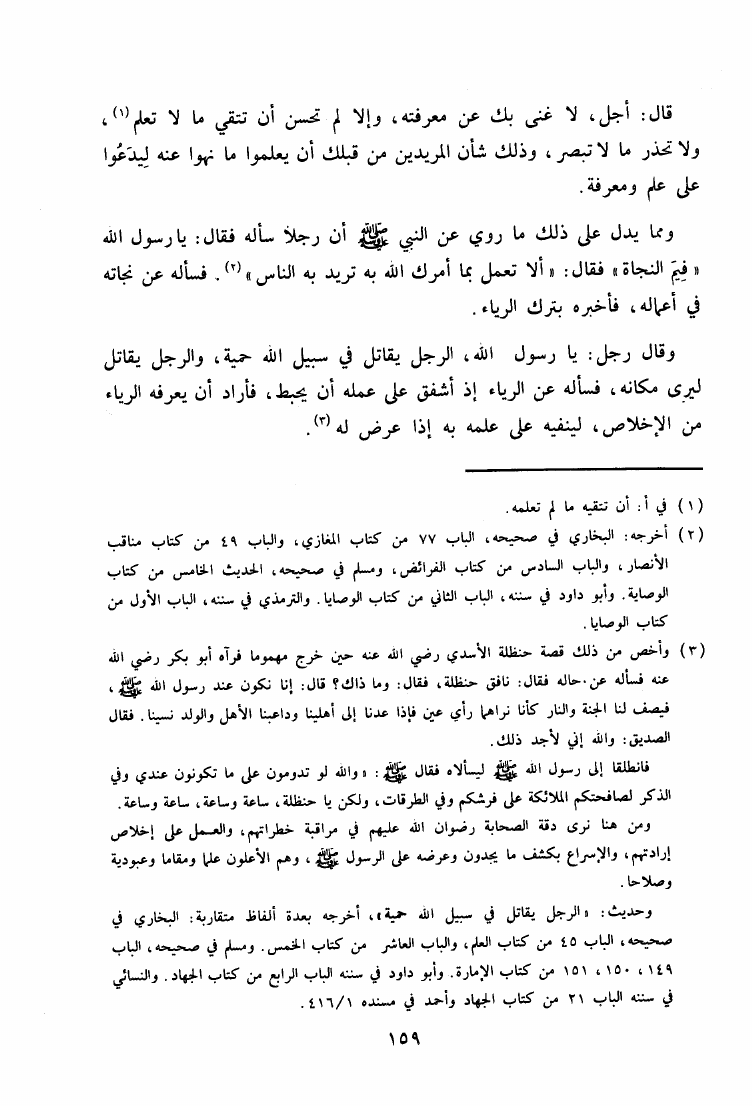 قال: أجل، لا غنى بك عن معرفته، وإلا لم تحسن أن تتقي ما لا تعلم(١)،
ولا تحذر ما لا تبصر، وذلك شأن المريدين من قبلك أن يعلموا ما نهوا عنه لِيدَعُوا
على علم ومعرفة.
ومما يدل على ذلك ما روي عن النبي ﷺ أن رجلاً سأله فقال: يا رسول الله
«فِيمَ النجاة» فقال: «ألا تعمل بما أمرك الله به تريد به الناس»(٢). فسأله عن نجاته
في أعماله، فأخبره بترك الرياء.
وقال رجل: يا رسول الله، الرجل يقاتل في سبيل الله حمية، والرجل يقاتل
ليرى مكانه، فسأله عن الرياء إذ أشفق على عمله أن يحبط، فأراد أن يعرفه الرياء
من الإخلاص، لينفيه على علمه به إذا عرض له(٣).
(١) في أ: أن تتقيه ما لم تعلمه.
(٢) أخرجه: البخاري في صحيحه، الباب ٧٧ من كتاب المغازي، والباب ٤٩ من كتاب مناقب
الأنصار، والباب السادس من كتاب الفرائض، ومسلم في صحيحه، الحديث الخامس من كتاب
الوصاية. وأبو داود في سننه، الباب الثاني من كتاب الوصايا. والترمذي في سننه، الباب الأول من
كتاب الوصايا.
(٣) وأخص من ذلك قصة حنظلة الأسدي رضي الله عنه حين خرج مهموما فرآه أبو بكر رضي الله
عنه فسأله عن حاله فقال: نافق حنظلة، فقال: وما ذاك؟ قال: إنا نكون عند رسول الله ﷺ،
فيصف لنا الجنة والنار كأنا نراهما رأي عين فإذا عدنا إلى أهلينا وداعبنا الأهل والولد نسينا. فقال
الصديق: والله إني لأجد ذلك.
فانطلقا إلى رسول الله ﷺ ليسألاه فقال ﷺ: «والله لو تدومون على ما تكونون عندي وفي
الذكر لصافحتكم الملائكة على فرشكم وفي الطرقات، ولكن يا حنظلة، ساعة وساعة، ساعة وساعة.
ومن هنا نرى دقة الصحابة رضوان الله عليهم في مراقبة خطراتهم، والعمل على إخلاص
إرادتهم، والإسراع بكشف ما يجدون وعرضه على الرسول ﷺ، وهم الأعلون علما ومقاما وعبودية
وصلاحا.
وحديث: «الرجل يقاتل في سبيل الله حمية»، أخرجه بعدة ألفاظ متقاربة: البخاري في
صحيحه، الباب ٤٥ من كتاب العلم، والباب العاشر من كتاب الخمس. ومسلم في صحيحه، الباب
١٤٩، ١٥٠، ١٥١ من كتاب الإمارة. وأبو داود في سننه الباب الرابع من كتاب الجهاد. والنسائي
في سننه الباب ٢١ من كتاب الجهاد وأحمد في مسنده ٤١٦/١.
١٥٩